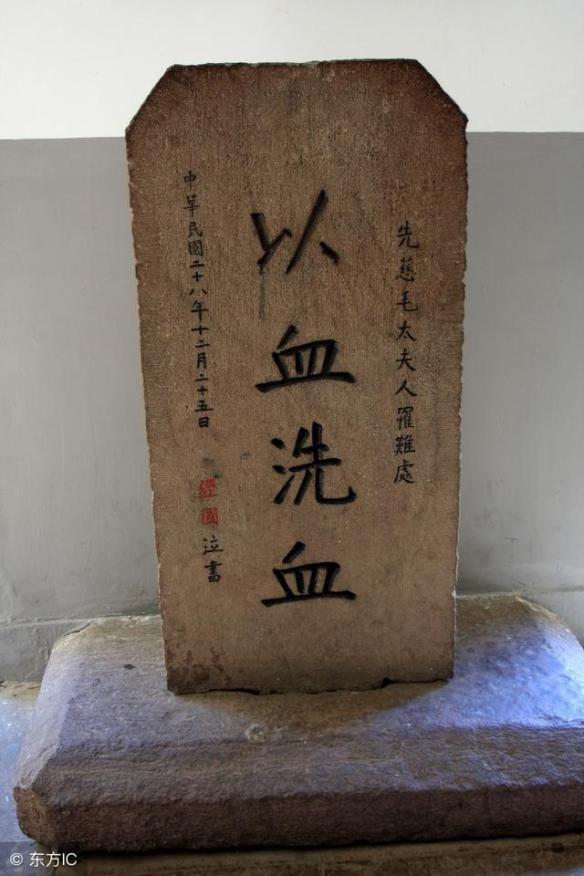 先慈毛太夫人罹難處
以血洗血
中華民國二十八年十二月二十五日
經國泣書
© 东方IC